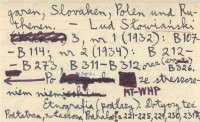 garen, Slovaken, Polen und Ru-
thenen. - Lud Słowiański
3, nr 1 (1932): B 107-
- B 114; nr 2 (1934): B 212-
- B 273, B 311 - B 312 oraz B 326.
Po ze streszcze-
niem niemieckim MT-WHP
Etnografia (podlag). Dotyczy też
Podtatrza, Podhala s. 221-225, 229, 230, 231